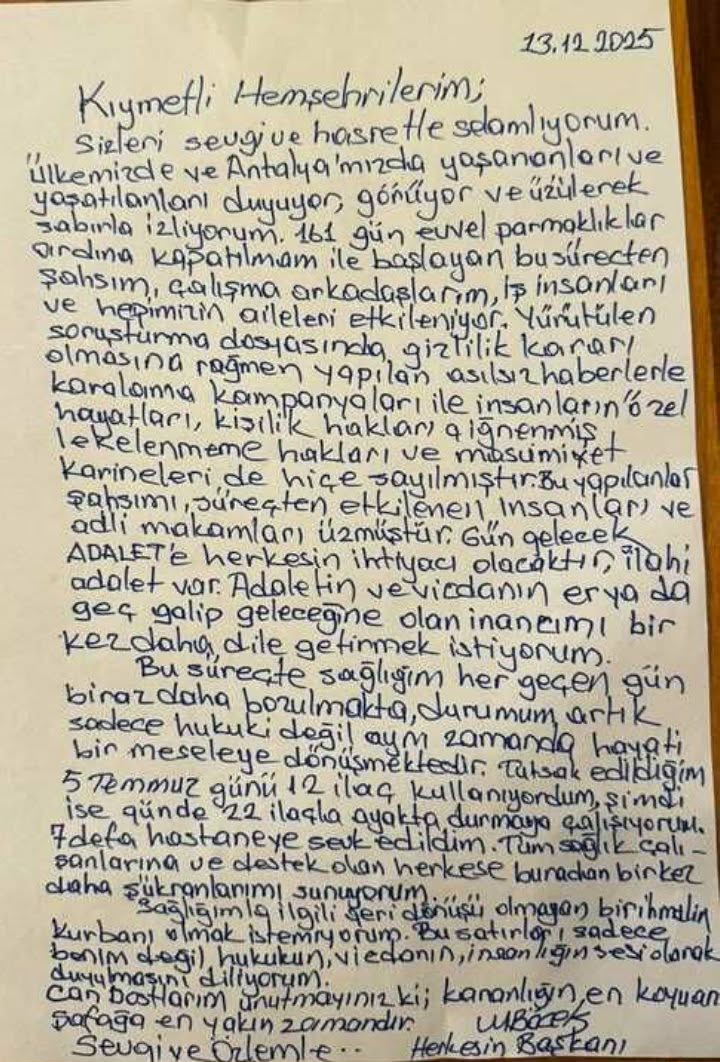 13.12.2025
Kıymetli Hemşehrilerim;
Sizleri sevgi ve hasretle selamlıyorum.
Ülkemizde ve Antalya'mızda yaşananları ve
yaşatılanları duyuyor, görüyor ve üzülerek
sabırla izliyorum. 161 gün evvel parmaklıklar
ardına kapatılmam ile başlayan bu süreçten
şahsım, çalışma arkadaşlarım, iş insanları
ve hepimizin aileleri etkileniyor. Yürütülen
soruşturma dosyasında gizlilik kararı
olmasına rağmen yapılan asılsız haberlerle
karalama kampanyaları ile insanların özel
hayatları, kişilik hakları çiğnenmiş,
lekelenmeme hakları ve masumiyet
karineleri de hiçe sayılmıştır. Bu yapılanlar
şahsımı, süreçten etkilenen insanları ve
adli makamları üzmüştür. Gün gelecek
ADALET'e herkesin ihtiyacı olacaktır, ilahi
adalet var. Adaletin ve vicdanın er ya da
geç galip geleceğine olan inancımı bir
kez daha dile getirmek istiyorum.
Bu süreçte sağlığım her geçen gün
biraz daha bozulmakta, durumum artık
sadece hukuki değil aynı zamanda hayati
bir meseleye dönüşmektedir. Tutsak edildiğim
5 Temmuz günü 12 ilaç kullanıyordum, şimdi
ise günde 22 ilaçla ayakta durmaya çalışıyorum.
7 defa hastaneye sevk edildim. Tüm sağlık çalı-
şanlarına ve destek olan herkese buradan bir kez
daha şükranlarımı sunuyorum.
Sağlığımla ilgili geri dönüşü olmayan bir ihmalin
kurbanı olmak istemiyorum. Bu satırları sadece
benim değil hukukun, vicdanın, insanlığın sesi olarak
duyulmasını diliyorum.
Can Dostlarım unutmayınız ki; karanlığın en koyuan
şafağa en yakın zamandır. M.BÖCEK
Sevgi ve Özlemle.. Herkesin Başkanı